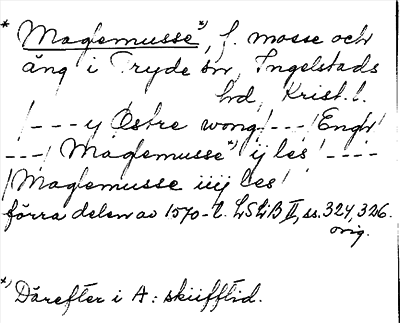 * Maglemusse*), f. mosse och
äng i Tryde sn, Ingelstads
hd, Krist. l.
/--- y Østre wong/---/Engh/
---/ Maglemusse*) ij les/ ----
/Maglemusse iiij les/
förra delen av 1570-t. LSLB II, ss. 324, 326.
orig.
*) Därefter i A: skiifftid.